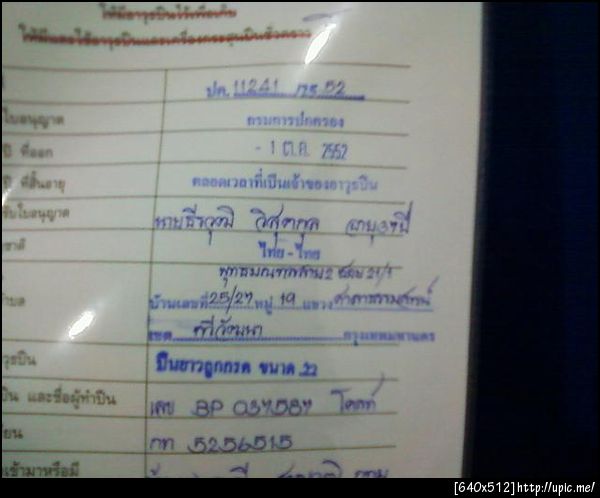 ให้มีอาวุธปืนไว้เพื่อเก็บ
ให้มีและใช้อาวุธปืนและเครื่องกระสุนปืนชั่วคราว
ปค. 11241 /25 52
ใบอนุญาต กรมการปกครอง
ปี ที่ออก - 1 ต.ค. 2552
ปี ที่สิ้นอายุ ตลอดเวลาที่เป็นเจ้าของอาวุธปืน
รับใบอนุญาต นายธีรวุฒิ อายุ 37 ปี
ชาติ ไทย - ไทย
พุทธมณฑลสาย 2 ซอย 21/1
บ้านเลขที่ 25/27 หมู่ 19 แขวง ศาลาธรรมสพน์
เขต ทวีวัฒนา กรุงเทพมหานคร
วุธปืน ปืนยาวลูกกรด ขนาด .22
ปืน และชื่อผู้ทำปืน เลข BP 037587 โคลท์
ยน กท 5256515
เข้ามาหรือมี
[640x512]http://upic.me/